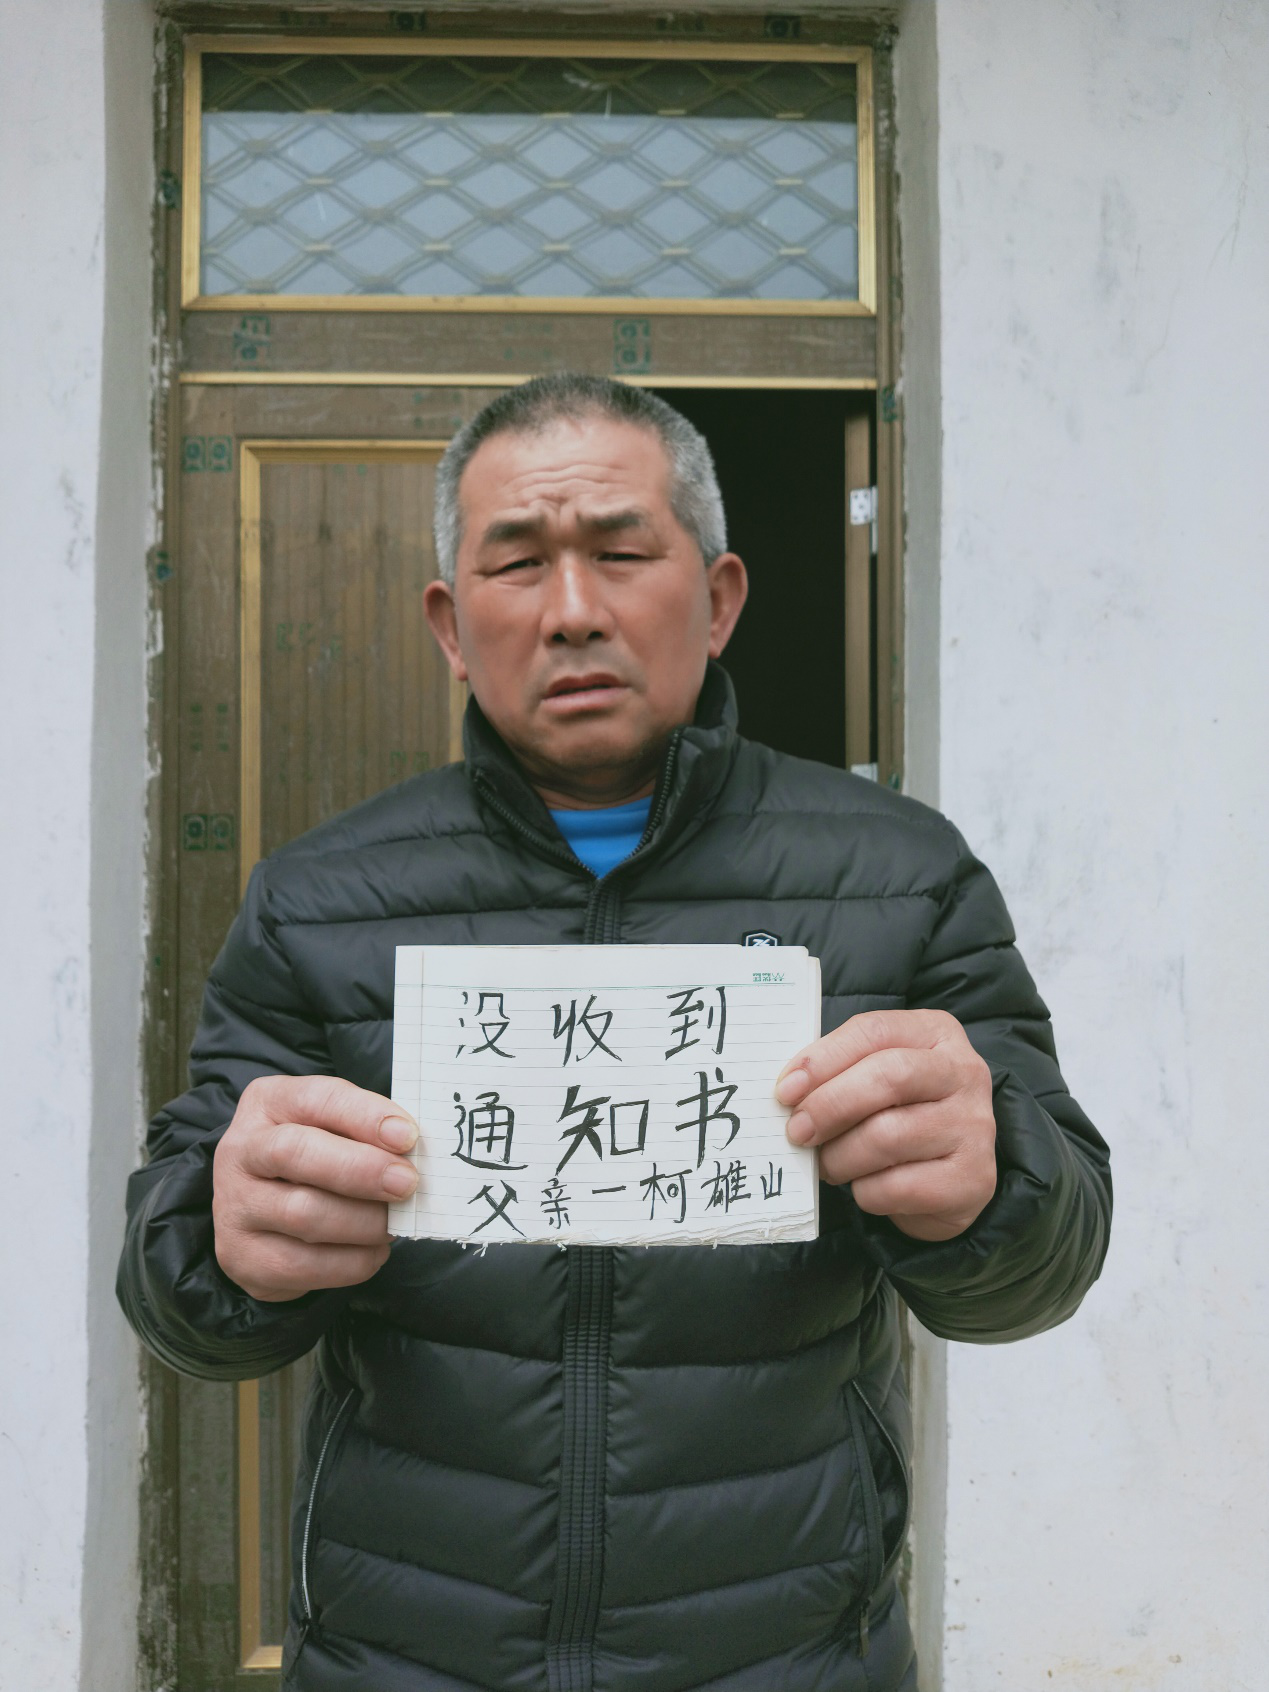 没收到
通知书
父亲一柯雄山